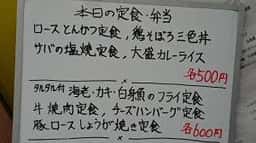 本日の定食・弁当
ロースとんかつ定食, 鶏そぼろ三色丼
サバの塩焼定食, 大盛カレーライス
各500円
タルタル付 海老・カキ・白身魚のフライ定食
牛焼肉定食, チーズハンバーグ定食
豚ロースしょうが焼き定食
各600円